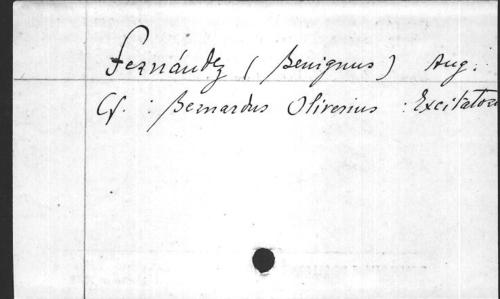 Fernández (Benignus) Aug.
Cf. : Bernardus Oliverius : Excitatori